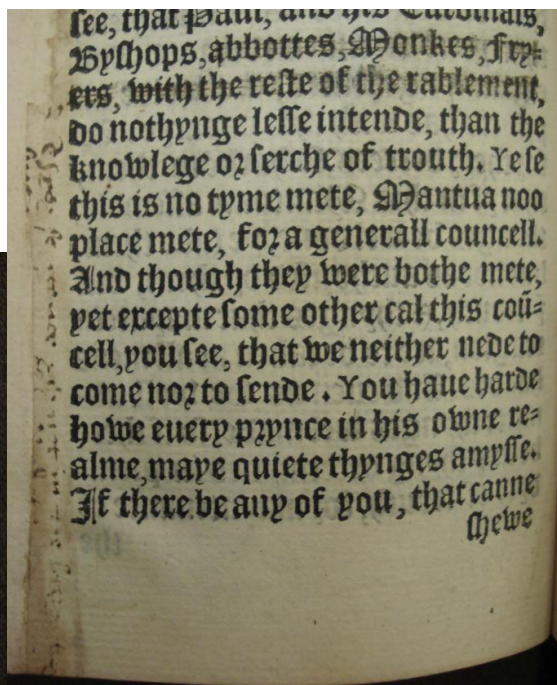 see, that Paul, and his Cardinals,
Byshops, abbottes, Monkes, Fry⸗
ers, with the reste of the rablement,
do nothynge lesse intende, than the
knowlege or serche of trouth. Ye se
this is no tyme mete, Mantua noo
place mete, for a generall councell.
And though they were bothe mete,
yet excepte some other cal this coū⸗
cell, you see, that we neither nede to
come nor to sende. You haue harde
howe euery prynce in his owne re⸗
alme, maye quiete thynges amysse.
If there be any of you, that canne
shewe